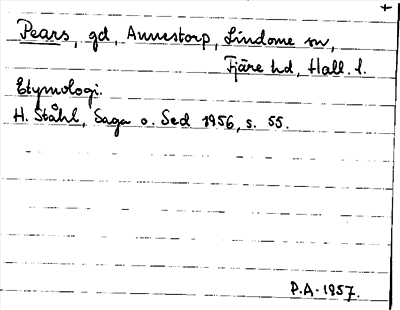 +
Pears, gd, Annestorp, Lindome sn,
Fjäre hd, Hall. l.
Etymologi.
H. Ståhl, Saga o. Sed 1956, s. 55.
P.A. 1957.